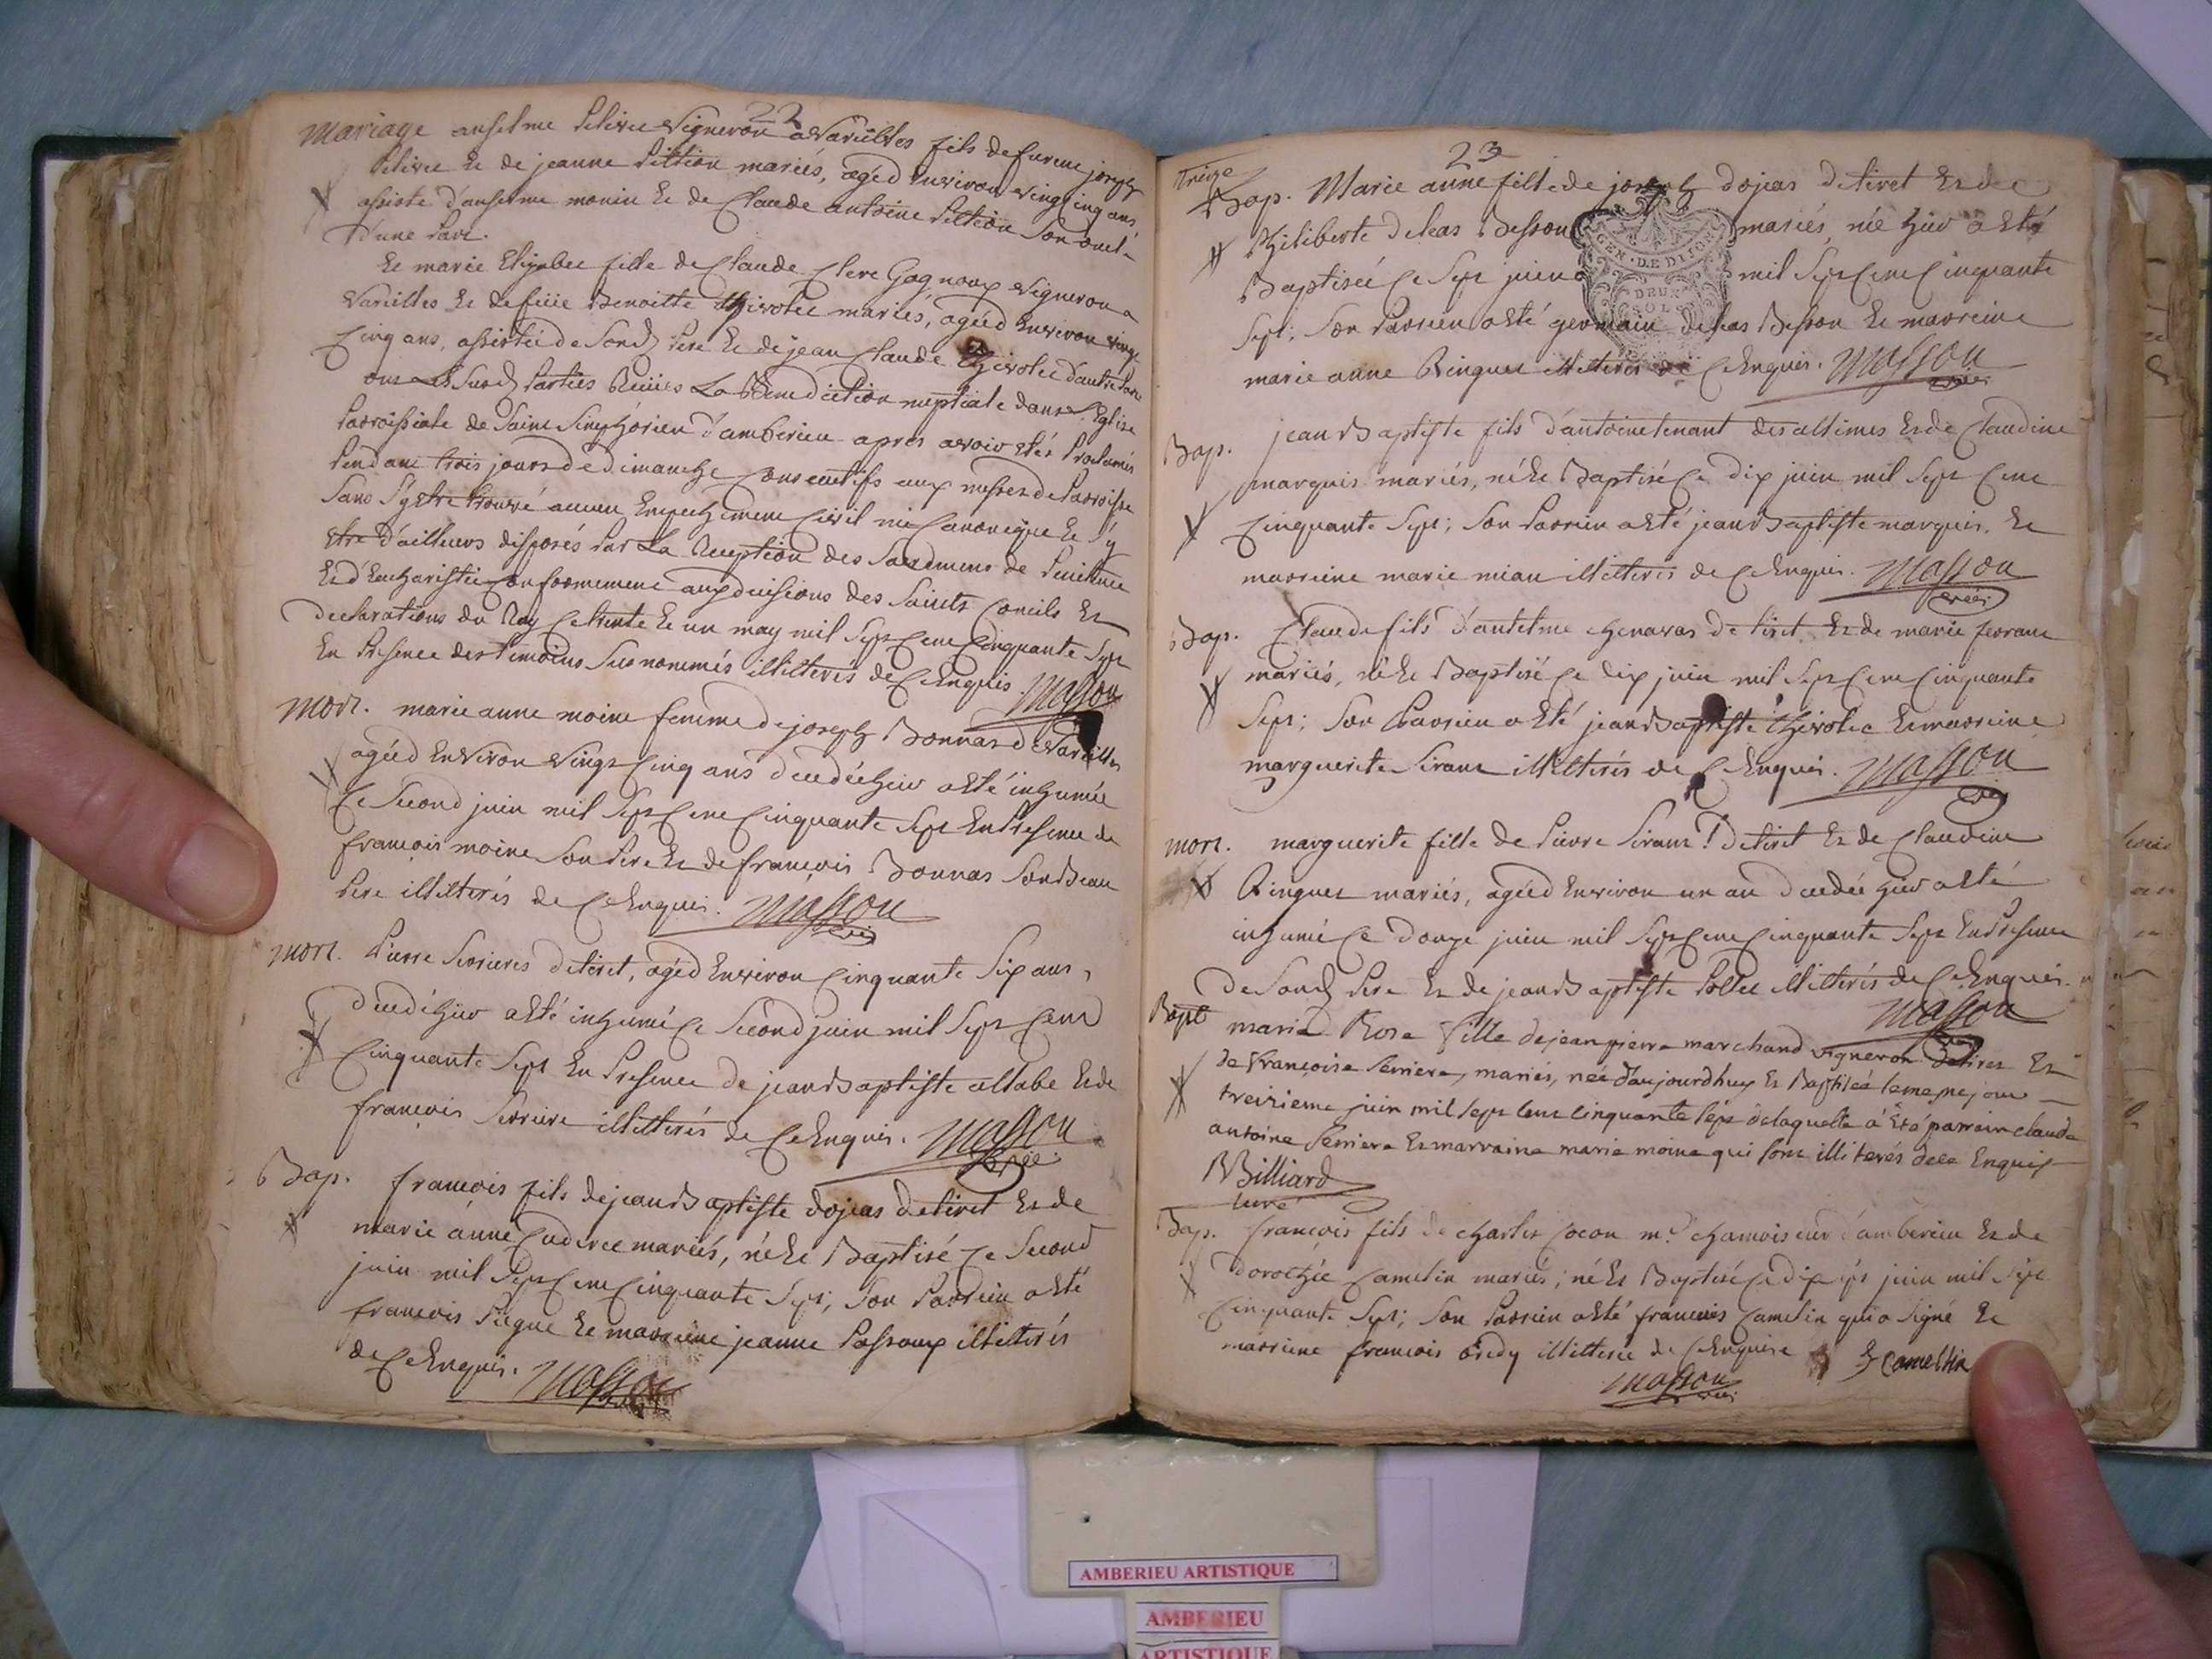 22
Mariage anselme vigneron a Vareilles fils de feu joseph
et de jeanne mariés, agé d'environ vingt cinq ans,
assisté d'anselme monin et de Claude antoine son oncle
d'une part.
Et marie Elizabet fille de Claude vigneron a
Vareilles et de Benoitte mariés, agéé d'environ vingt
Cinq ans, assistéé de Sond pere et de jean Claude d'autre part
ont Les Susd parties Reçües La Benediction nuptiale dans L'Eglise
Parroissiale de Saint Simphorien d'amberieu apres avoir etés Proclamés
Pendant trois jours de dimanche Consecutifs aux messes de Parroisse
Sans S'y etre trouvé aucun Empechement Civil ni Canonique et S'y
etre d'ailleurs disposés Par La Reception des Sacremens de Penitence
Et d'Eucharistie Conformement aux decisions des Saints Concils Et
declarations du Roy Ce trente et un may mil Sept Cent Cinquante Sept
En Presence des temoins Susnommés illitterés de Ce Enquis. Masson
Mort. marie anne moine femme de joseph Bonnas de Vareilles
agéé d'Environ vingt Cinq ans decedéé hier a eté inhumée
Ce Second juin mil Sept Cent Cinquante Sept En Presence de
francois moine Son Pere Et de francois Bonnas Son Beau
Pere illitterés de Ce Enquis. Masson
mort. Pierre de tiret, agé d'Environ Cinquante Six ans,
decedé hier a eté inhumé Ce Second juin mil Sept Cent
Cinquante Sept En Presence de jean Baptiste allabe Et de
francois illitterés de Ce Enquis. Masson
Bap. francois fils de jean Baptiste dojeas de tiret Et de
marie anne mariés, né Et Baptisé Ce Second
juin mil Sept Cent Cinquante Sept; Son Parrein a eté
francois et marreine jeanne illitterés
de Ce Enquis. Masson
23
Treize
Bap. Marie anne fille de joseph dojeas de tiret Et de
Philiberte deleas Besson mariés, née hier a eté
GEN. DE DIJON
DEUX
SOLS
Baptisée Ce Sept juin mil Sept Cent Cinquante
Sept; Son Parrein a eté germain deleas Besson Et marreine
marie anne Ringuet illitterés de Ce Enquis. Masson
Bap. jean Baptiste fils d'antoine tenant des allimes Et de Claudine
marquis mariés, né Et Baptisé Ce dix juin mil Sept Cent
Cinquante Sept; Son Parrein a eté jean Baptiste marquis, Et
marreine marie mian illitterés de Ce Enquis. Masson
Bap. Claude fils d'antelme chenavas de tiret Et de marie
mariés, né Et Baptisé Ce dix juin mil Sept Cent Cinquante
Sept; Son Parrein a eté jean Baptiste Et marreine
marguerite Sirant illitterés de Ce Enquis. Masson
mort. marguerite fille de Pierre Sirant de tiret Et de Claudine
Ringuet mariés, agéé d'Environ un an decedéé hier a eté
inhumé Ce douze juin mil Sept Cent Cinquante Sept En Presence
de Sond Pere Et de jean Baptiste illitterés de Ce Enquis.
Masson
Bapt marie Rose fille de jean pierre marchand vigneron de tiret Et
de françoise mariés, née d'aujourdhuy Et Baptiséé le meme jour
treizieme juin mil sept cent cinquante sept de laquelle a Eté parrain claude
antoine Et marraine marie moine qui sont illiterés de ce Enquis
Billiard
Curé
Bap. francois fils de charles cocon me chamoiseur d'amberieu Et de
dorothée Camelin mariés; né Et Baptisé Ce dix sept juin mil Sept
Cinquante Sept; Son Parrein a eté francois Camelin qui a Signé Et
marreine illitterée de Ce Enquise
Masson
AMBERIEU ARTISTIQUE
AMBERIEU
ARTISTIQUE